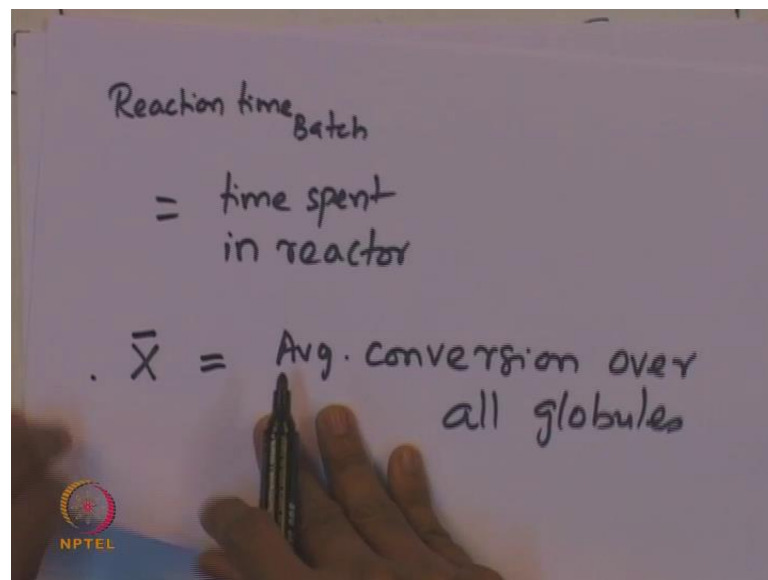 Reaction time Batch
= time spent
in reactor
. X̄ = Avg. conversion over
all globules
NPTEL